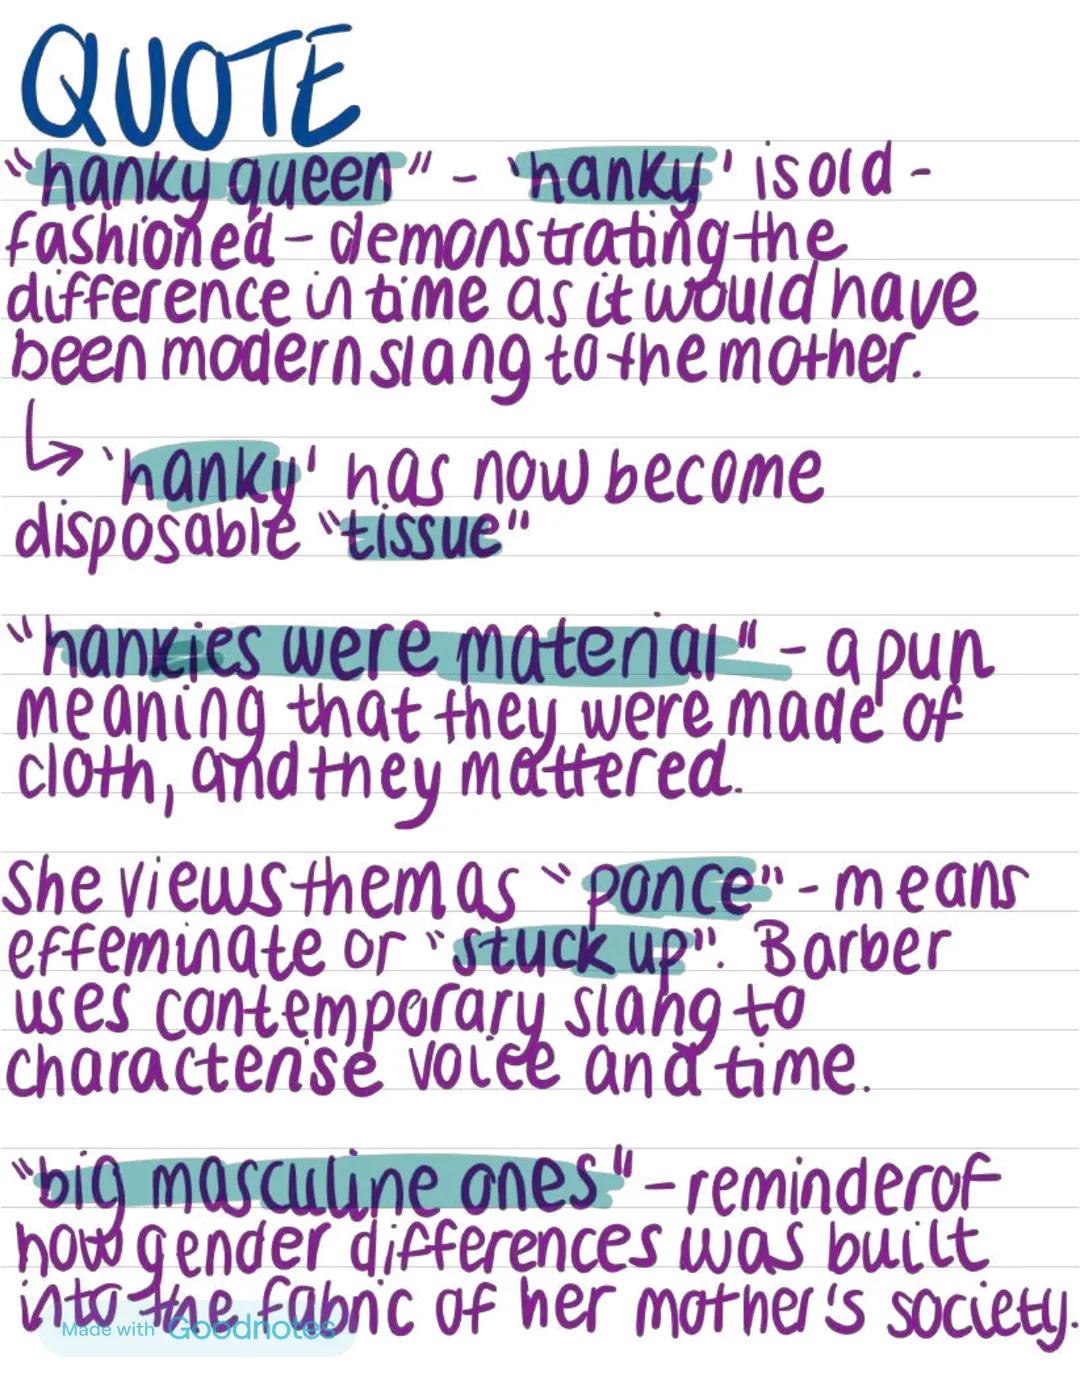 QUOTE
"hanky queen" - 'hanky' is old -
fashioned - demonstrating the
difference in time as it would have
been modern slang to the mother.
↳ 'hanky' has now become
disposable "tissue"
"hankies were material" - a pun
meaning that they were made of
cloth, and they mattered.
She views them as "ponce" - means
effeminate or "stuck up". Barber
uses contemporary slang to
characterise voice and time.
"big masculine ones" - reminder of
how gender differences was built
into the fabric of her mother's society.
Made with Goodnotes